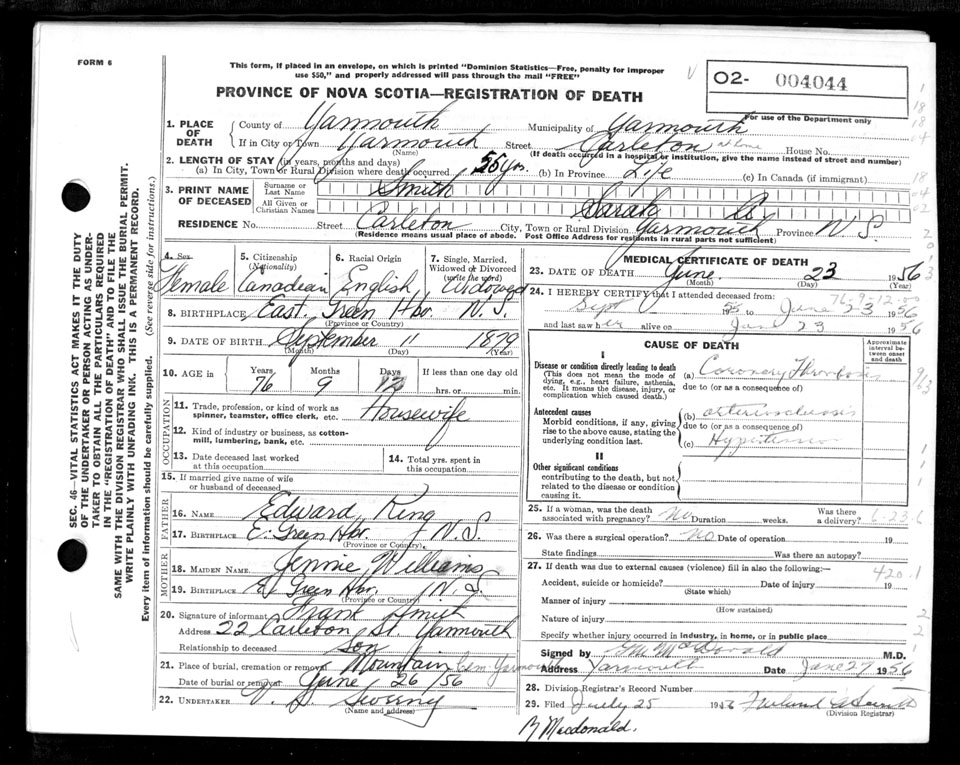 FORM 6
This form, if placed in an envelope, on which is printed "Dominion Statistics—Free, penalty for improper
use $50," and properly addressed will pass through the mail "FREE"
PROVINCE OF NOVA SCOTIA—REGISTRATION OF DEATH
O2- 004044
For use of the Department only
1. PLACE OF DEATH County of Yarmouth Municipality of Yarmouth
If in City or Town Yarmouth Street Carleton House No.
(Name) (If death occurred in a hospital or institution, give the name instead of street and number)
2. LENGTH OF STAY (in years, months and days)
(a) In City, Town or Rural Division where death occurred 56 yrs. (b) In Province Life (c) In Canada (if immigrant)
3. PRINT NAME OF DECEASED Surname or Last Name Smith
All Given or Christian Names Sarah A.
RESIDENCE No. Street Carleton City, Town or Rural Division Yarmouth Province N.S.
(Residence means usual place of abode. Post Office Address for residents in rural parts not sufficient)
4. Sex Female
5. Citizenship (Nationality) Canadian
6. Racial Origin English
7. Single, Married, Widowed or Divorced (write the word) Widowed
8. BIRTHPLACE East Green Hbr. N.S.
(Province or Country)
9. DATE OF BIRTH September 11 1879
(Month) (Day) (Year)
10. AGE in Years 76 Months 9 Days 12 If less than one day old
hrs. or min.
OCCUPATION
11. Trade, profession, or kind of work as spinner, teamster, office clerk, etc. Housewife
12. Kind of industry or business, as cotton-mill, lumbering, bank, etc.
13. Date deceased last worked at this occupation
14. Total yrs. spent in this occupation
15. If married give name of wife or husband of deceased
FATHER
16. NAME Edward King
17. BIRTHPLACE E. Green Hbr. N.S.
(Province or Country)
MOTHER
18. MAIDEN NAME Jennie Williams
19. BIRTHPLACE E. Green Hbr. N.S.
(Province or Country)
20. Signature of informant Frank Smith
Address 22 Carleton St. Yarmouth
Relationship to deceased son
21. Place of burial, cremation or removal Mountain Cem. Yarmouth
Date of burial or removal June 26/56
22. UNDERTAKER V. S. Sweeny
(Name and address)
MEDICAL CERTIFICATE OF DEATH
23. DATE OF DEATH June 23 1956
(Month) (Day) (Year)
76-9-12-00
24. I HEREBY CERTIFY that I attended deceased from:
Sept 1955 to June 23 1956
and last saw her alive on June 23 1956
CAUSE OF DEATH
Approximate interval between onset and death
I
Disease or condition directly leading to death
(This does not mean the mode of dying, e.g., heart failure, asthenia, etc. It means the disease, injury, or complication which caused death.)
(a) Coronary Thrombosis
due to (or as a consequence of)
Antecedent causes
Morbid conditions, if any, giving rise to the above cause, stating the underlying condition last.
(b) arteriosclerosis
due to (or as a consequence of)
(c) Hypertension
II
Other significant conditions
contributing to the death, but not related to the disease or condition causing it.
25. If a woman, was the death associated with pregnancy? No Duration weeks. Was there a delivery? 6-23-6
26. Was there a surgical operation? No Date of operation 19
State findings Was there an autopsy?
27. If death was due to external causes (violence) fill in also the following:— 420.1
Accident, suicide or homicide? Date of injury 19
(State which)
Manner of injury
(How sustained)
Nature of injury
Specify whether injury occurred in industry, in home, or in public place
Signed by M McDonald M.D.
Address Yarmouth Date June 27 1956
28. Division Registrar's Record Number
29. Filed July 25 1956
(Division Registrar)
Macdonald.
SEC. 46—VITAL STATISTICS ACT MAKES IT THE DUTY
OF THE UNDERTAKER OR PERSON ACTING AS UNDER-
TAKER TO OBTAIN ALL THE PARTICULARS REQUIRED
IN THE "REGISTRATION OF DEATH" AND TO FILE THE
SAME WITH THE DIVISION REGISTRAR WHO SHALL ISSUE THE BURIAL PERMIT.
WRITE PLAINLY WITH UNFADING INK. THIS IS A PERMANENT RECORD.
Every item of information should be carefully supplied. (See reverse side for instructions.)